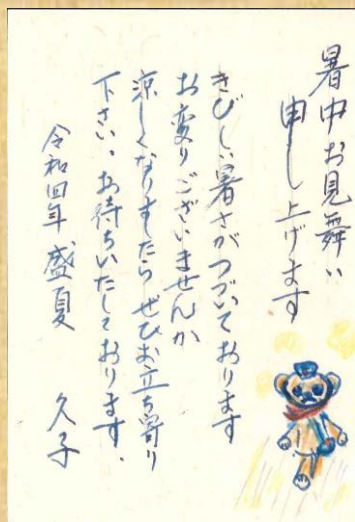 暑中お見舞い
申し上げます
きびしい暑さがつづいております
お変りございませんか
涼しくなりましたらぜひお立ち寄り
下さい。お待ちいたしております。
令和四年 盛夏 久子